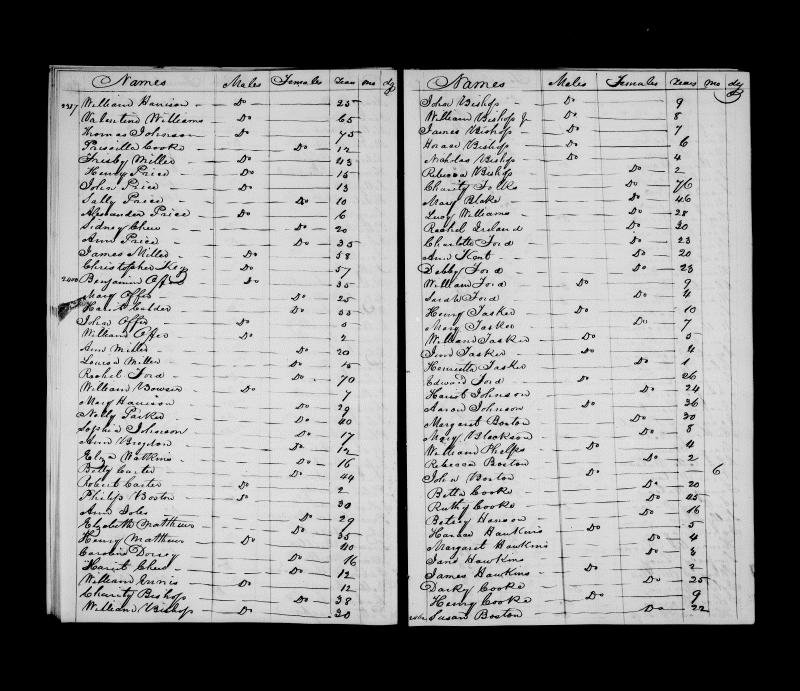 Names Males Females Years mo dy
2387 William Harrison - Do 25
Valentine Williams Do 65
Thomas Johnson - Do 45
Priscilla Cooke - Do - 12
Frisby Miller - Do 43
Henry Price - Do 15
John Price - Do 13
Sally Price - Do 10
Alexander Price Do 6
Sidney Chew - Do - 20
Ann Price - Do 35
James Miller - Do 58
Christopher Key Do 57
2400 Benjamin Offer Do 35
Mary Offer - Do 25
Harriet Calder Do 55
John Offer Do 5
William Offer Do 2
Ann Miller - Do - 20
Louisa Miller Do
Rachel Ford - Do - 70
William Bowser Do 7
Mary Harrison - Do 29
Nelly Parker - Do 40
Sophia Johnson Do 17
Ann Brogdon - Do 12
Eliza Watkins Do - 16
Betty Carter - Do 44
Robert Carter Do 2
Philip Boston Do 30
Ann - Do 29
Elizabeth Matthews - Do 35
Henry Matthews Do 40
Caroline Dorsey Do 16
Harriet Chew - Do 12
William Annis - Do 12
Charity Bishop Do 38
William Bishop Do 30
Names Males Females Years mo dy
John Bishop - Do 9
William Bishop Jr Do 8
James Bishop - Do 7
Horace Bishop - Do 6
Nicholas Bishop Do 4
Rebecca Bishop Do - 2
Charity Folks Do 76
Mary Blake - Do 46
Lucy Williams - Do 28
Rachel Ireland Do 30
Charlotte Ford Do 23
Ann Kent - Do 20
Debby Ford - Do 23
William Ford Do 9
Sarah Ford Do 4
Henry Tasker Do 10
Mary Tasker Do 7
William Tasker Do 5
Tasker - Do 4
Henrietta Tasker Do 1
Edward Ford - Do 26
Harriet Johnson Do 24
Aaron Johnson Do 36
Margaret Boston Do 30
Mary Blackson - Do 8
William Phelps Do 4
Rebecca Boston Do 2
John Boston Do 6
Betty Cooke - Do 20
Ruthy Cooke Do 45
Betsey Hanson - Do 16
Hawkins Do 5
Margaret Hawkins Do 4
Jane Hawkins - Do 3
James Hawkins - Do 2
Darky Cooke - Do 25
Henry Cooke Do 9
Susan Boston Do 22